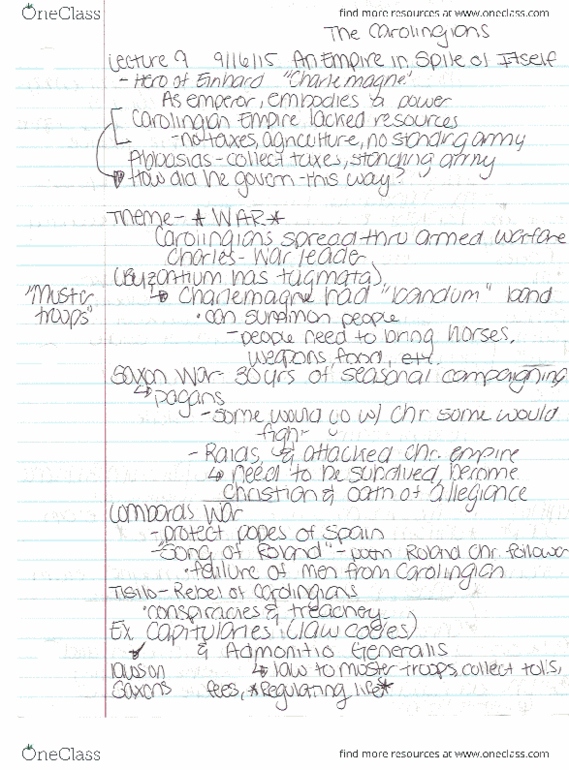 OneClass find more resources at www.oneclass.com
The Carolingians
Lecture 9 9/16/15 An Empire in Spite of Itself
- Hero of Einhard "Charlemagne"
As emperor, embodies & power
Carolingian Empire lacked resources
- no taxes, agriculture, no standing army
Abbasids - collect taxes, standing army
How did he govern this way?
Theme - * WAR *
Carolingians spread thru armed warfare
Charles - War leader
(Byzantium has tagmata)
"Muster troops"
↳ Charlemagne had "bandum" band
• can summon people
- people need to bring horses,
weapons food, etc.
Saxon War - 30 yrs of seasonal campaigning
↳ pagans
- some would go w/ Chr some would
fight
- Raids, & attacked Chr. empire
↳ need to be subdued, become
Christian & oath of allegiance
Lombards War
- protect popes of Spain
- "Song of Roland" - poem Roland Chr. follower
• failure of men from Carolingian
- Rebel of Carolingians
• conspiracies & treachey
Ex Capitularies (law codes)
& Admonitio Generalis
laws on
Saxons
↳ law to muster troops, collect tolls,
fees, *Regulating life*
OneClass find more resources at www.oneclass.com